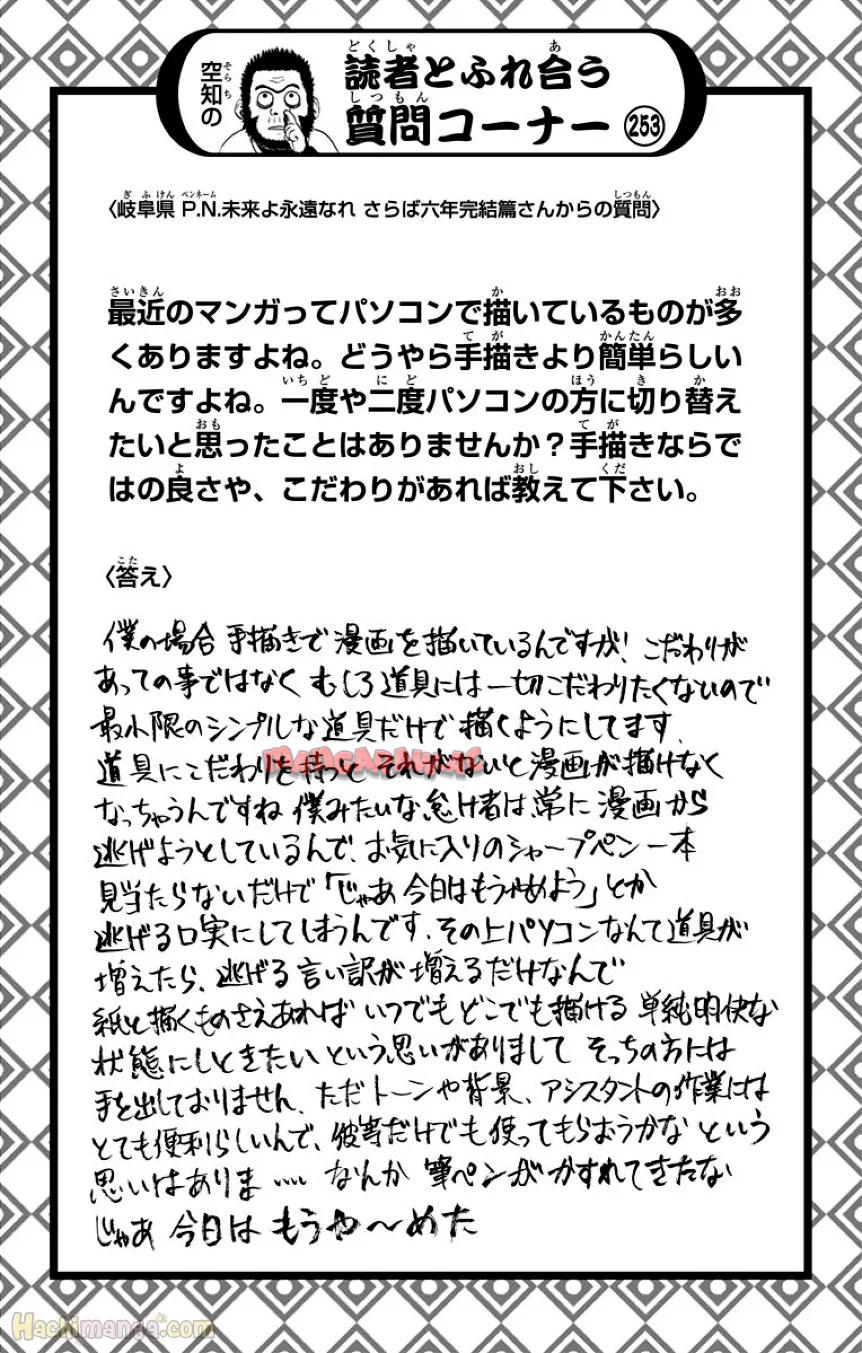 空知の
読者とふれ合う
質問コーナー 253
〈岐阜県 P.N.未来よ永遠なれ さらば六年完結篇さんからの質問〉
最近のマンガってパソコンで描いているものが多
くありますよね。どうやら手描きより簡単らしい
んですよね。一度や二度パソコンの方に切り替え
たいと思ったことはありませんか？手描きならで
はの良さや、こだわりがあれば教えて下さい。
〈答え〉
僕の場合 手描きで漫画を描いているんですが! こだわりが
あっての事ではなく むしろ道具には一切こだわりたくないので
最小限のシンプルな道具だけで描くようにしてます.
道具にこだわりを持つと それがないと漫画が描けなく
なっちゃうんですね 僕みたいな怠け者は、常に漫画から
逃げようとしているんで、お気に入りのシャープペン一本
見当たらないだけで「じゃあ今日はもうやめよう」とか
逃げる口実にしてしまうんです.その上パソコンなんて道具が
増えたら、逃げる言い訳が増えるだけなんで
紙と描くものさえあれば いつでもどこでも描ける 単純明快な
状態にしときたい という思いがありまして そっちの方には
手を出しておりません. ただトーンや背景、アシスタントの作業には
とても便利らしいんで、彼等だけでも使ってもらおうかな という
思いはありま…… なんか 筆ペンがかすれてきたな
じゃあ 今日は もうや〜めた
MANGARAWING
Hachimanga.com